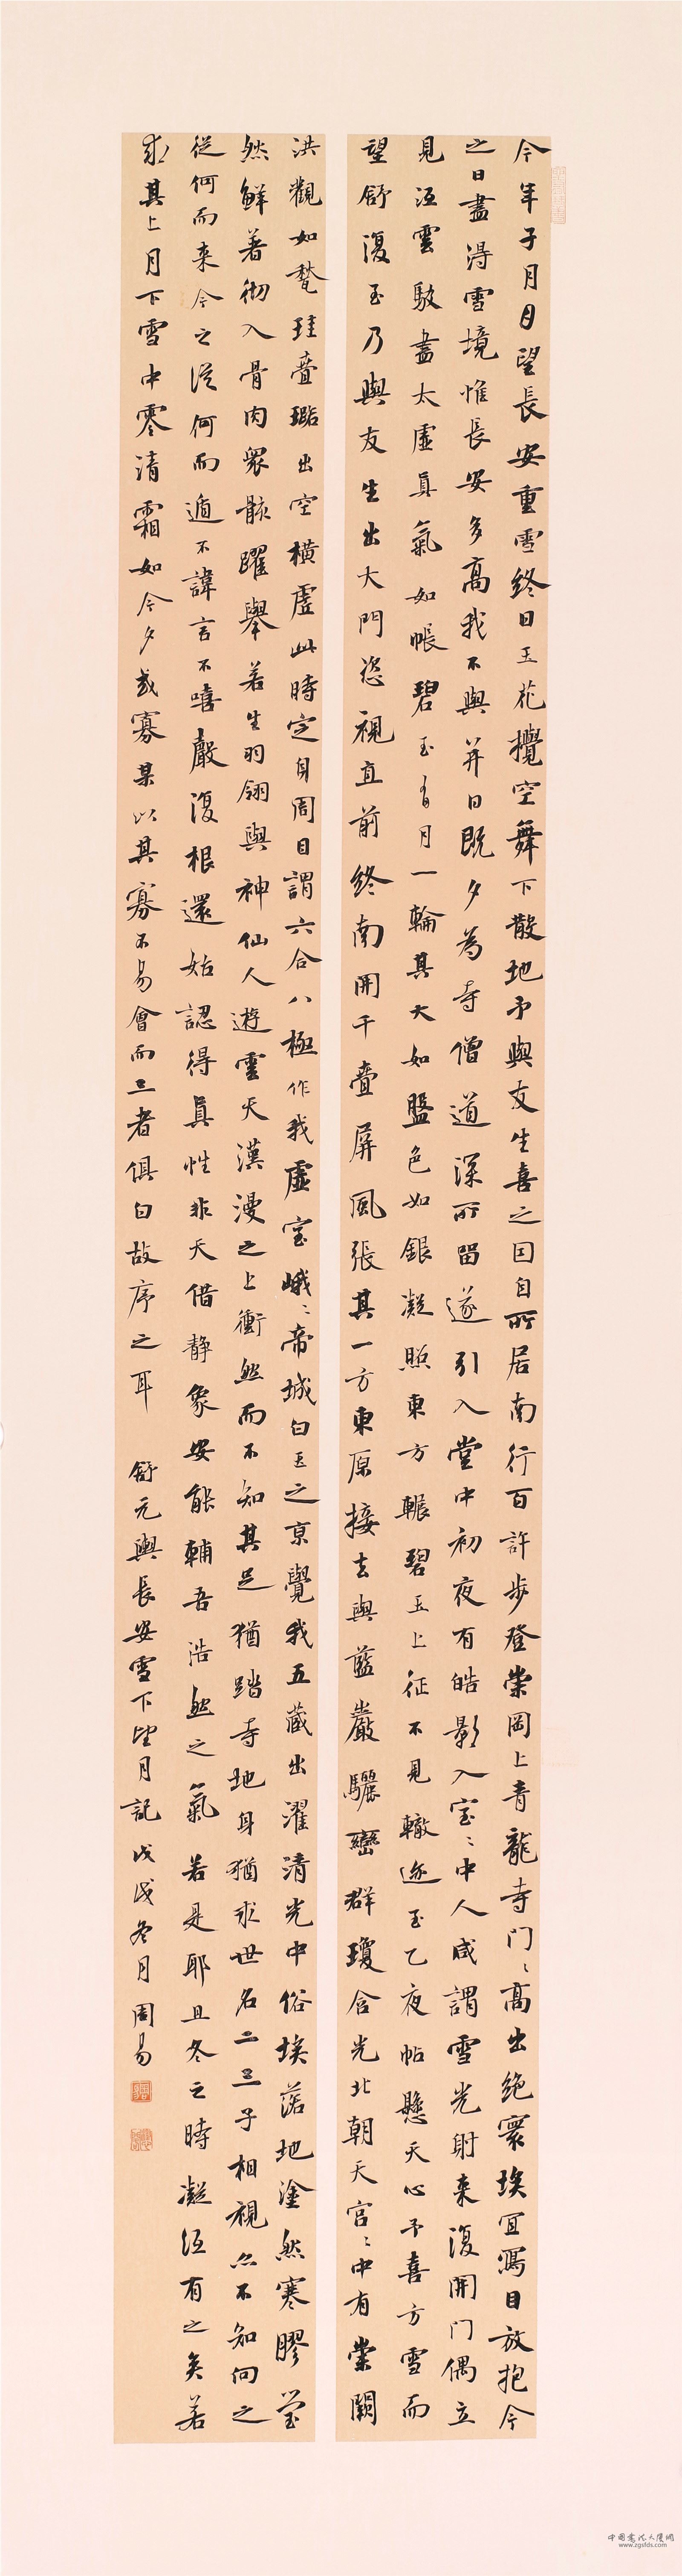 今年子月月望長安重雪終日玉花攪空舞下散地予與友生喜之因自所居南行百許步登崇岡上青龍寺門〻高出絕寰埃宜寫目放抱今
之日盡得雪境惟長安多高我不與并日既夕為寺僧道深所留遂引入堂中初夜有皓影入室〻中人咸謂雪光射來復開門偶立
見沍雲駮盡太虛真氣如帳碧玉有月一輪其大如盤色如銀凝照東方輾碧玉上征不見轍迹至乙夜帖懸天心予喜方雪而
望舒復至乃與友生出大門恣視直前終南開千疊屏風張其一方東原接去與藍巖驪巒群瓊含光北朝天宮〻中有崇闕
洪觀如甃珪疊璐出空橫虛此時定身周目謂六合八極作我虛室峨〻帝城白玉之京覺我五藏出濯清光中俗埃落地塗然寒膠瑩
然鮮著徹入骨肉眾骸躍舉若生羽翎與神仙人遊雲天漢漫之上衝然而不知其足猶踏寺地身猶求世名二三子相視亦不知向之
從何而來今之從何而遁不諱言不嘻聲復根還始認得真性非天借靜象安能輔吾浩然之氣若是耶且冬之時凝沍有之矣若
求其上月下雪中零清霜如今夕或寡某以其寡不易會而三者俱白故序之耳 舒元輿長安雪下望月記 戊戌冬月 周易
中國書法大廈網
www.zgsfds.com